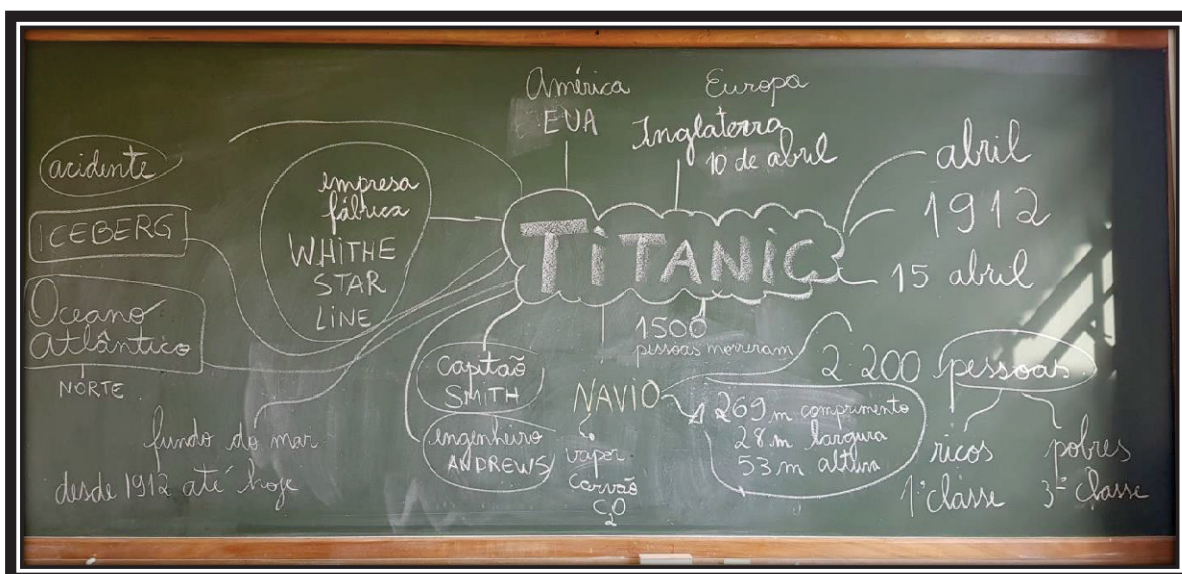 América
EUA
Europa
Inglaterra
10 de abril
abril
1912
15 abril
acidente
ICEBERG
Oceano
Atlântico
NORTE
empresa
fábrica
WHITHE
STAR
LINE
TiTANiC
1500
pessoas morreram
capitão
SMITH
engenheiro
ANDREWS
NAVIO
vapor
carvão
C2O
269 m comprimento
28 m largura
53 m altura
2.200 pessoas
ricos
1ª classe
pobres
3ª classe
fundo do mar
desde 1912 até hoje